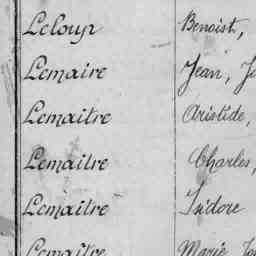 Leloup Benoist,
Lemaire Jean,
Lemaitre Aristide,
Lemaitre Charles,
Lemaitre Isidore
Lemaître Marie